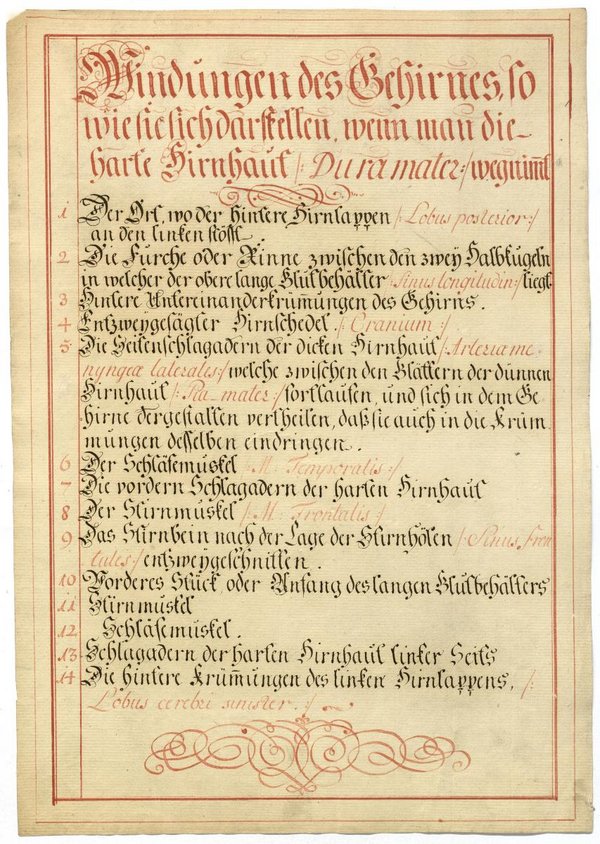 Windungen des Gehirnes, so
wie sie sich darstellen, wenn man die
harte Hirnhaut /: Dura mater :/ wegnimt
1 Der Ort, wo der hintere Hirnlappen /: Lobus posterior :/
an den linken stösst.
2 Die Furche oder Rinne zwischen den zwey Halbkugeln
in welcher der obere lange Blutbehälter /: Sinus longitudin :/ liegt
3 Hintere Untereinanderkrümungen des Gehirns.
4 Entzweygesägter Hirnschedel /: Cranium :/
5 Die Seitenschlagadern der dicken Hirnhaut /: Arteriæ me-
nyngeæ laterales :/ welche zwischen den Blättern der dünnen
Hirnhaut /: Pia mater :/ fortlaufen, und sich in dem Ge-
hirne dergestalten vertheilen, daß sie auch in die Krüm-
mungen desselben eindringen.
6 Der Schläfemuskel /: M: Temporalis :/
7 Die vordern Schlagadern der harten Hirnhaut
8 Der Stirnmuskel /: M: Frontalis :/
9 Das Stirnbein nach der Lage der Stirnhölen /: Sinus Fron-
tales :/ entzweygeschnitten.
10 Vorderes Stück, oder Anfang des langen Blutbehälters
11 Stirnmuskel
12 Schläfemuskel.
13 Schlagadern der harten Hirnhaut linker Seits
14 Die hintere Krümungen des linken Hirnlappens, /:
Lobus cerebri sinister. :/